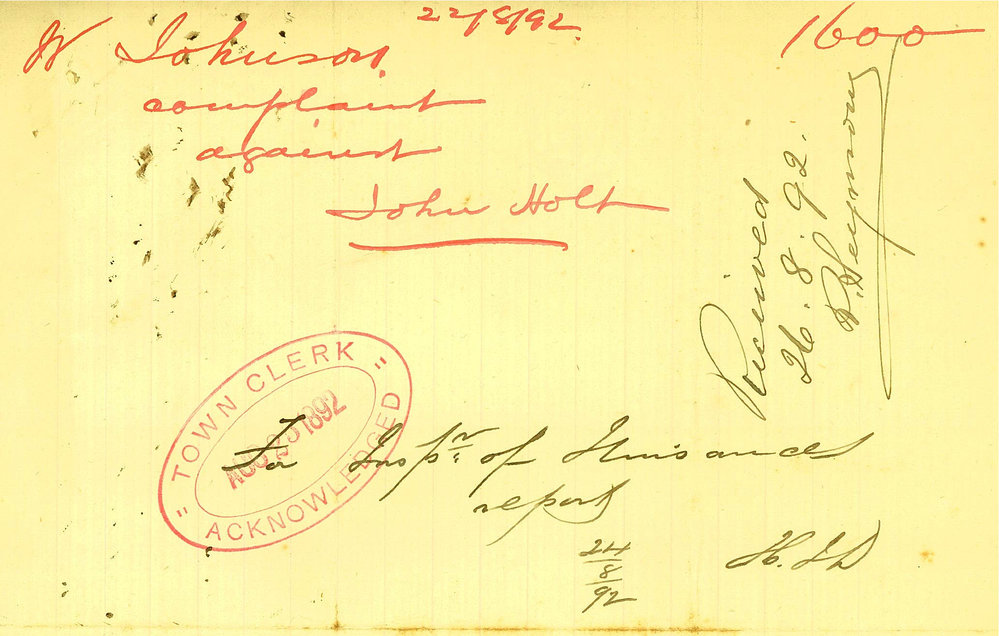 22/8/92
1600
W Johnson
complaint
against
John Holt
Received
26.8.92.
R. Seymour
"TOWN CLERK"
AUG 23 1892
ACKNOWLEDGED
For Inspr. of Nuisances
report
24/8/92